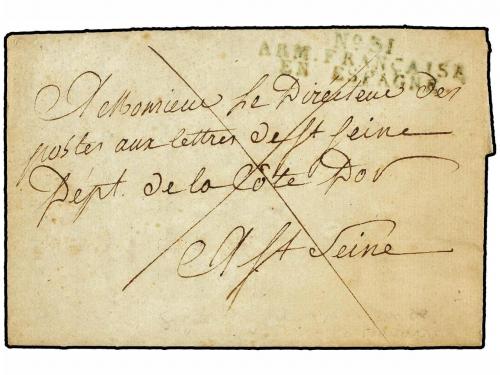 No 31
ARM. FRANÇAISE
EN ESPAGNE
A Monsieur Le Directeur des
postes aux lettres de St Seine
Dépt. de la Côte Dor
A St Seine